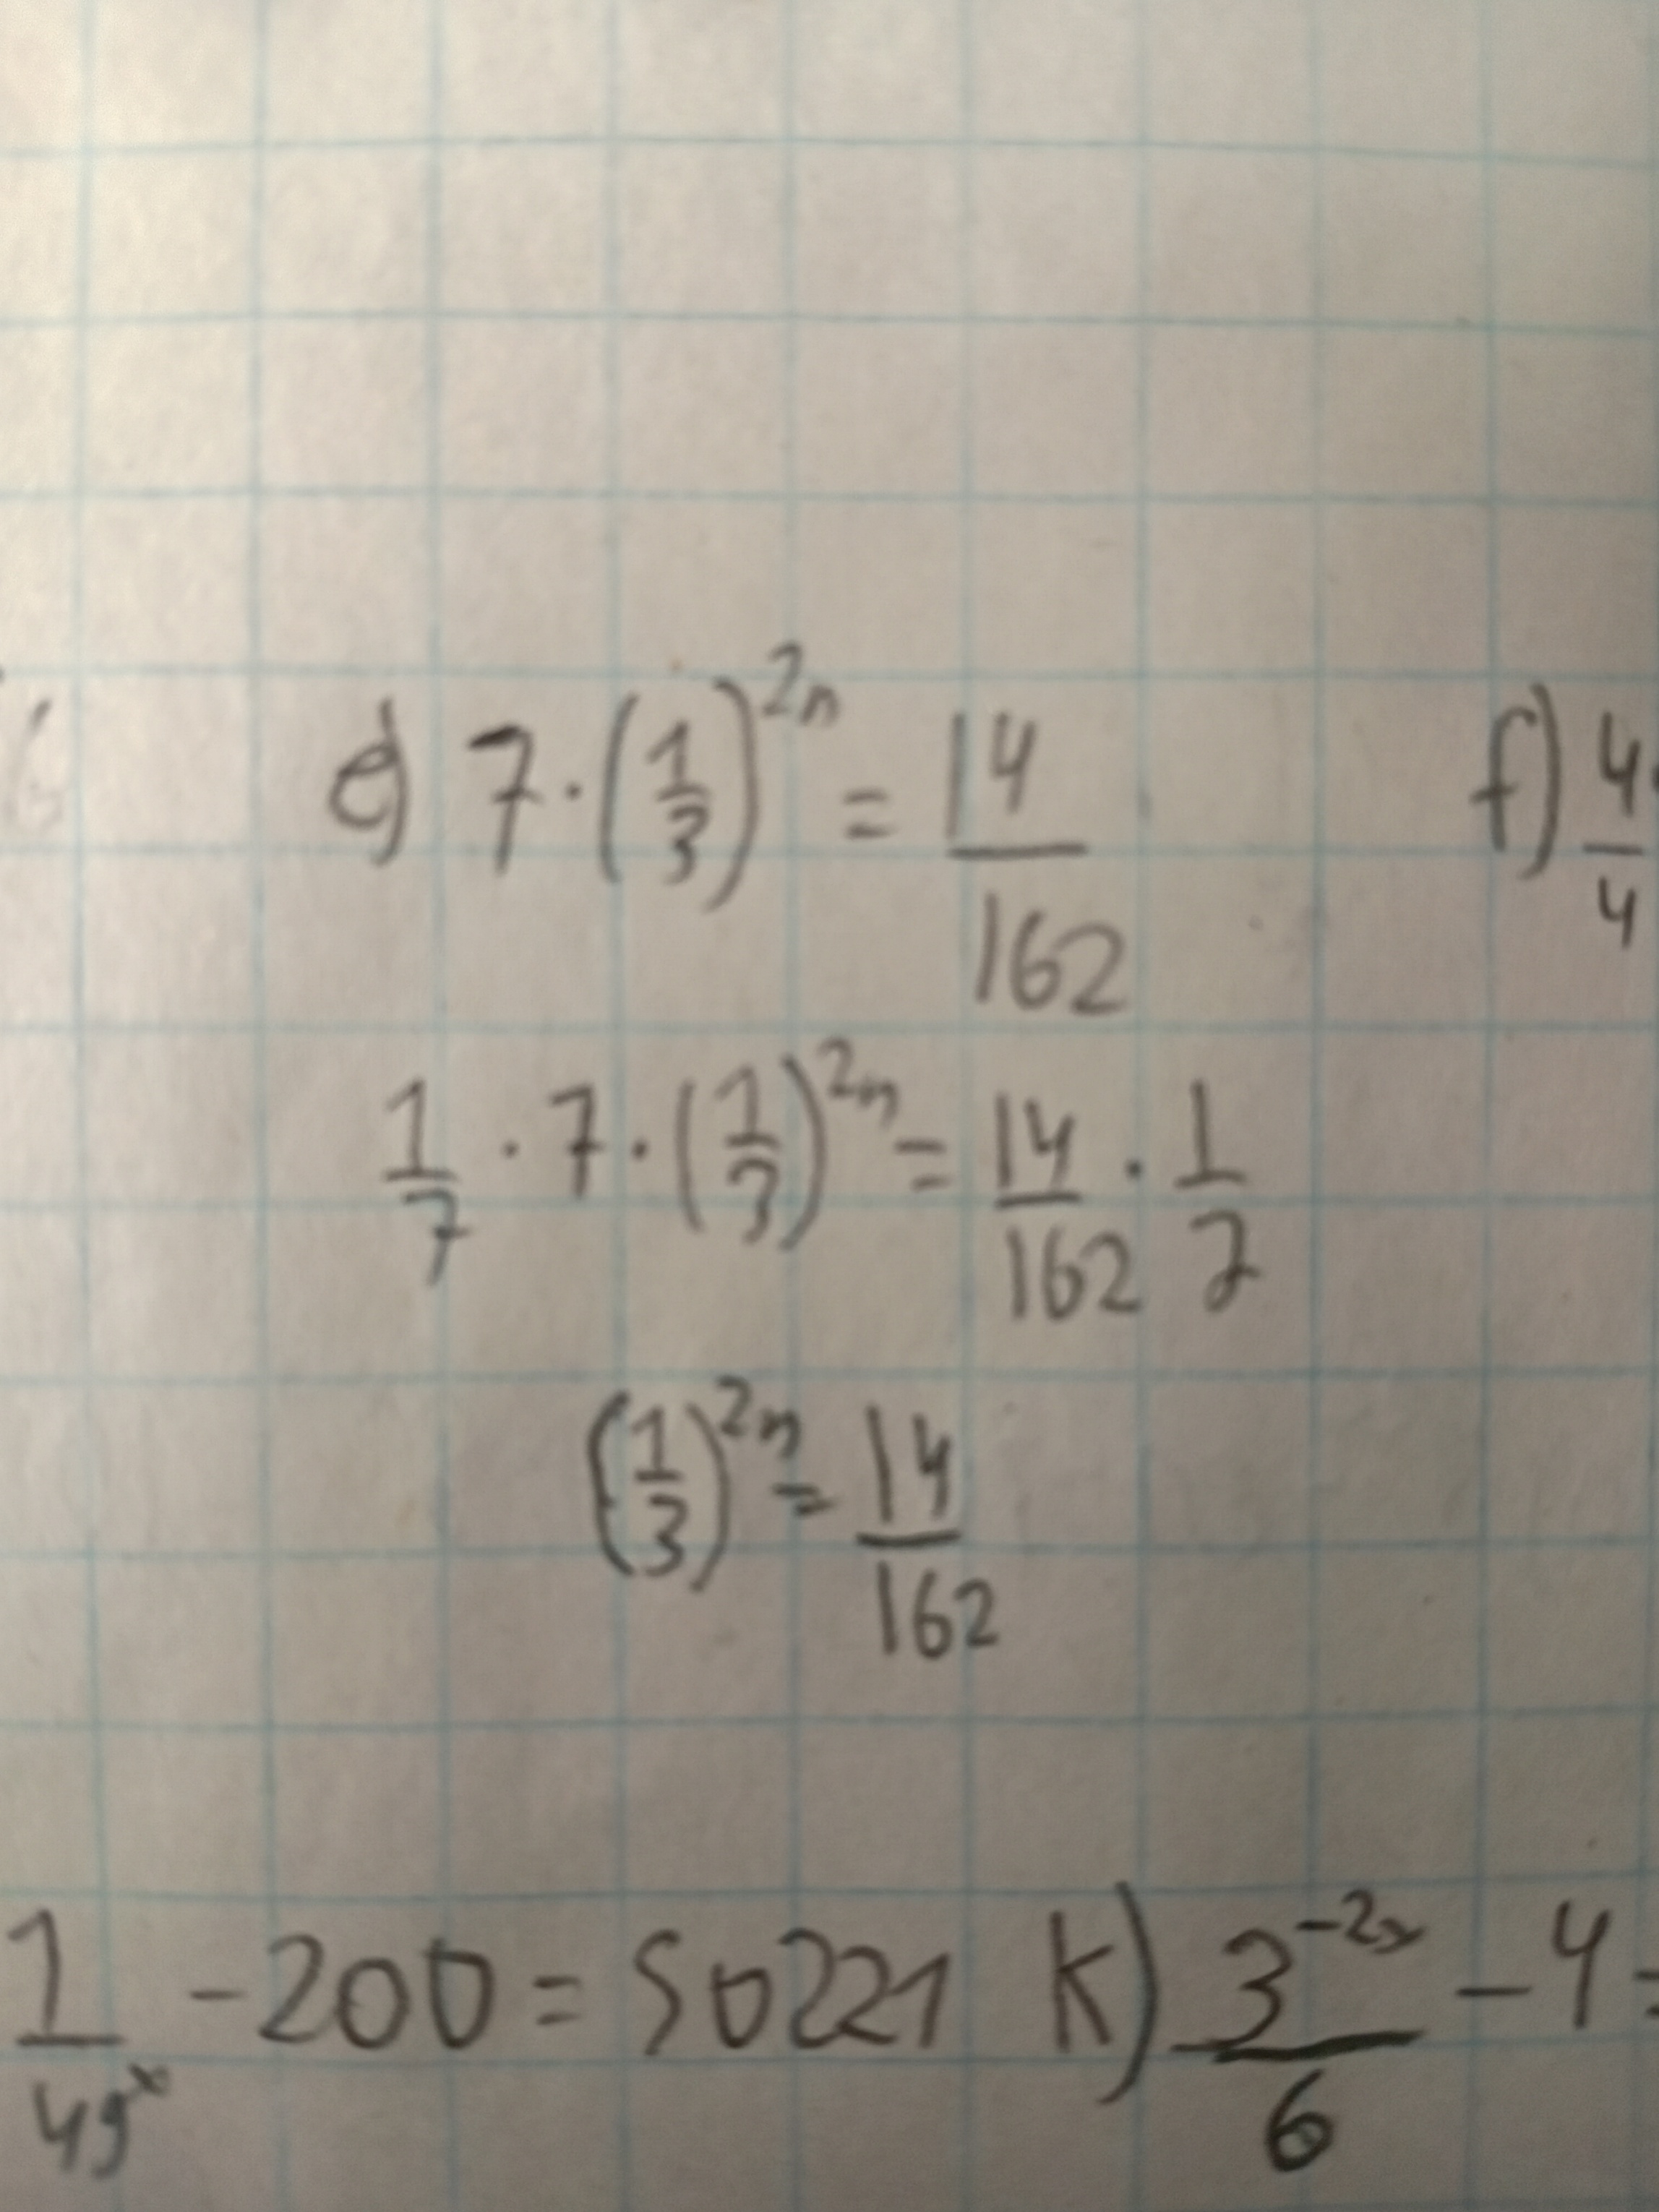 e) 7 · (1/3)^2n = 14/162
f) 4/4
1/7 · 7 · (1/3)^2n = 14/162 · 1/7
(1/3)^2n = 14/162
1/49^x - 200 = 50221
k) 3^-2x/6 - 4 =